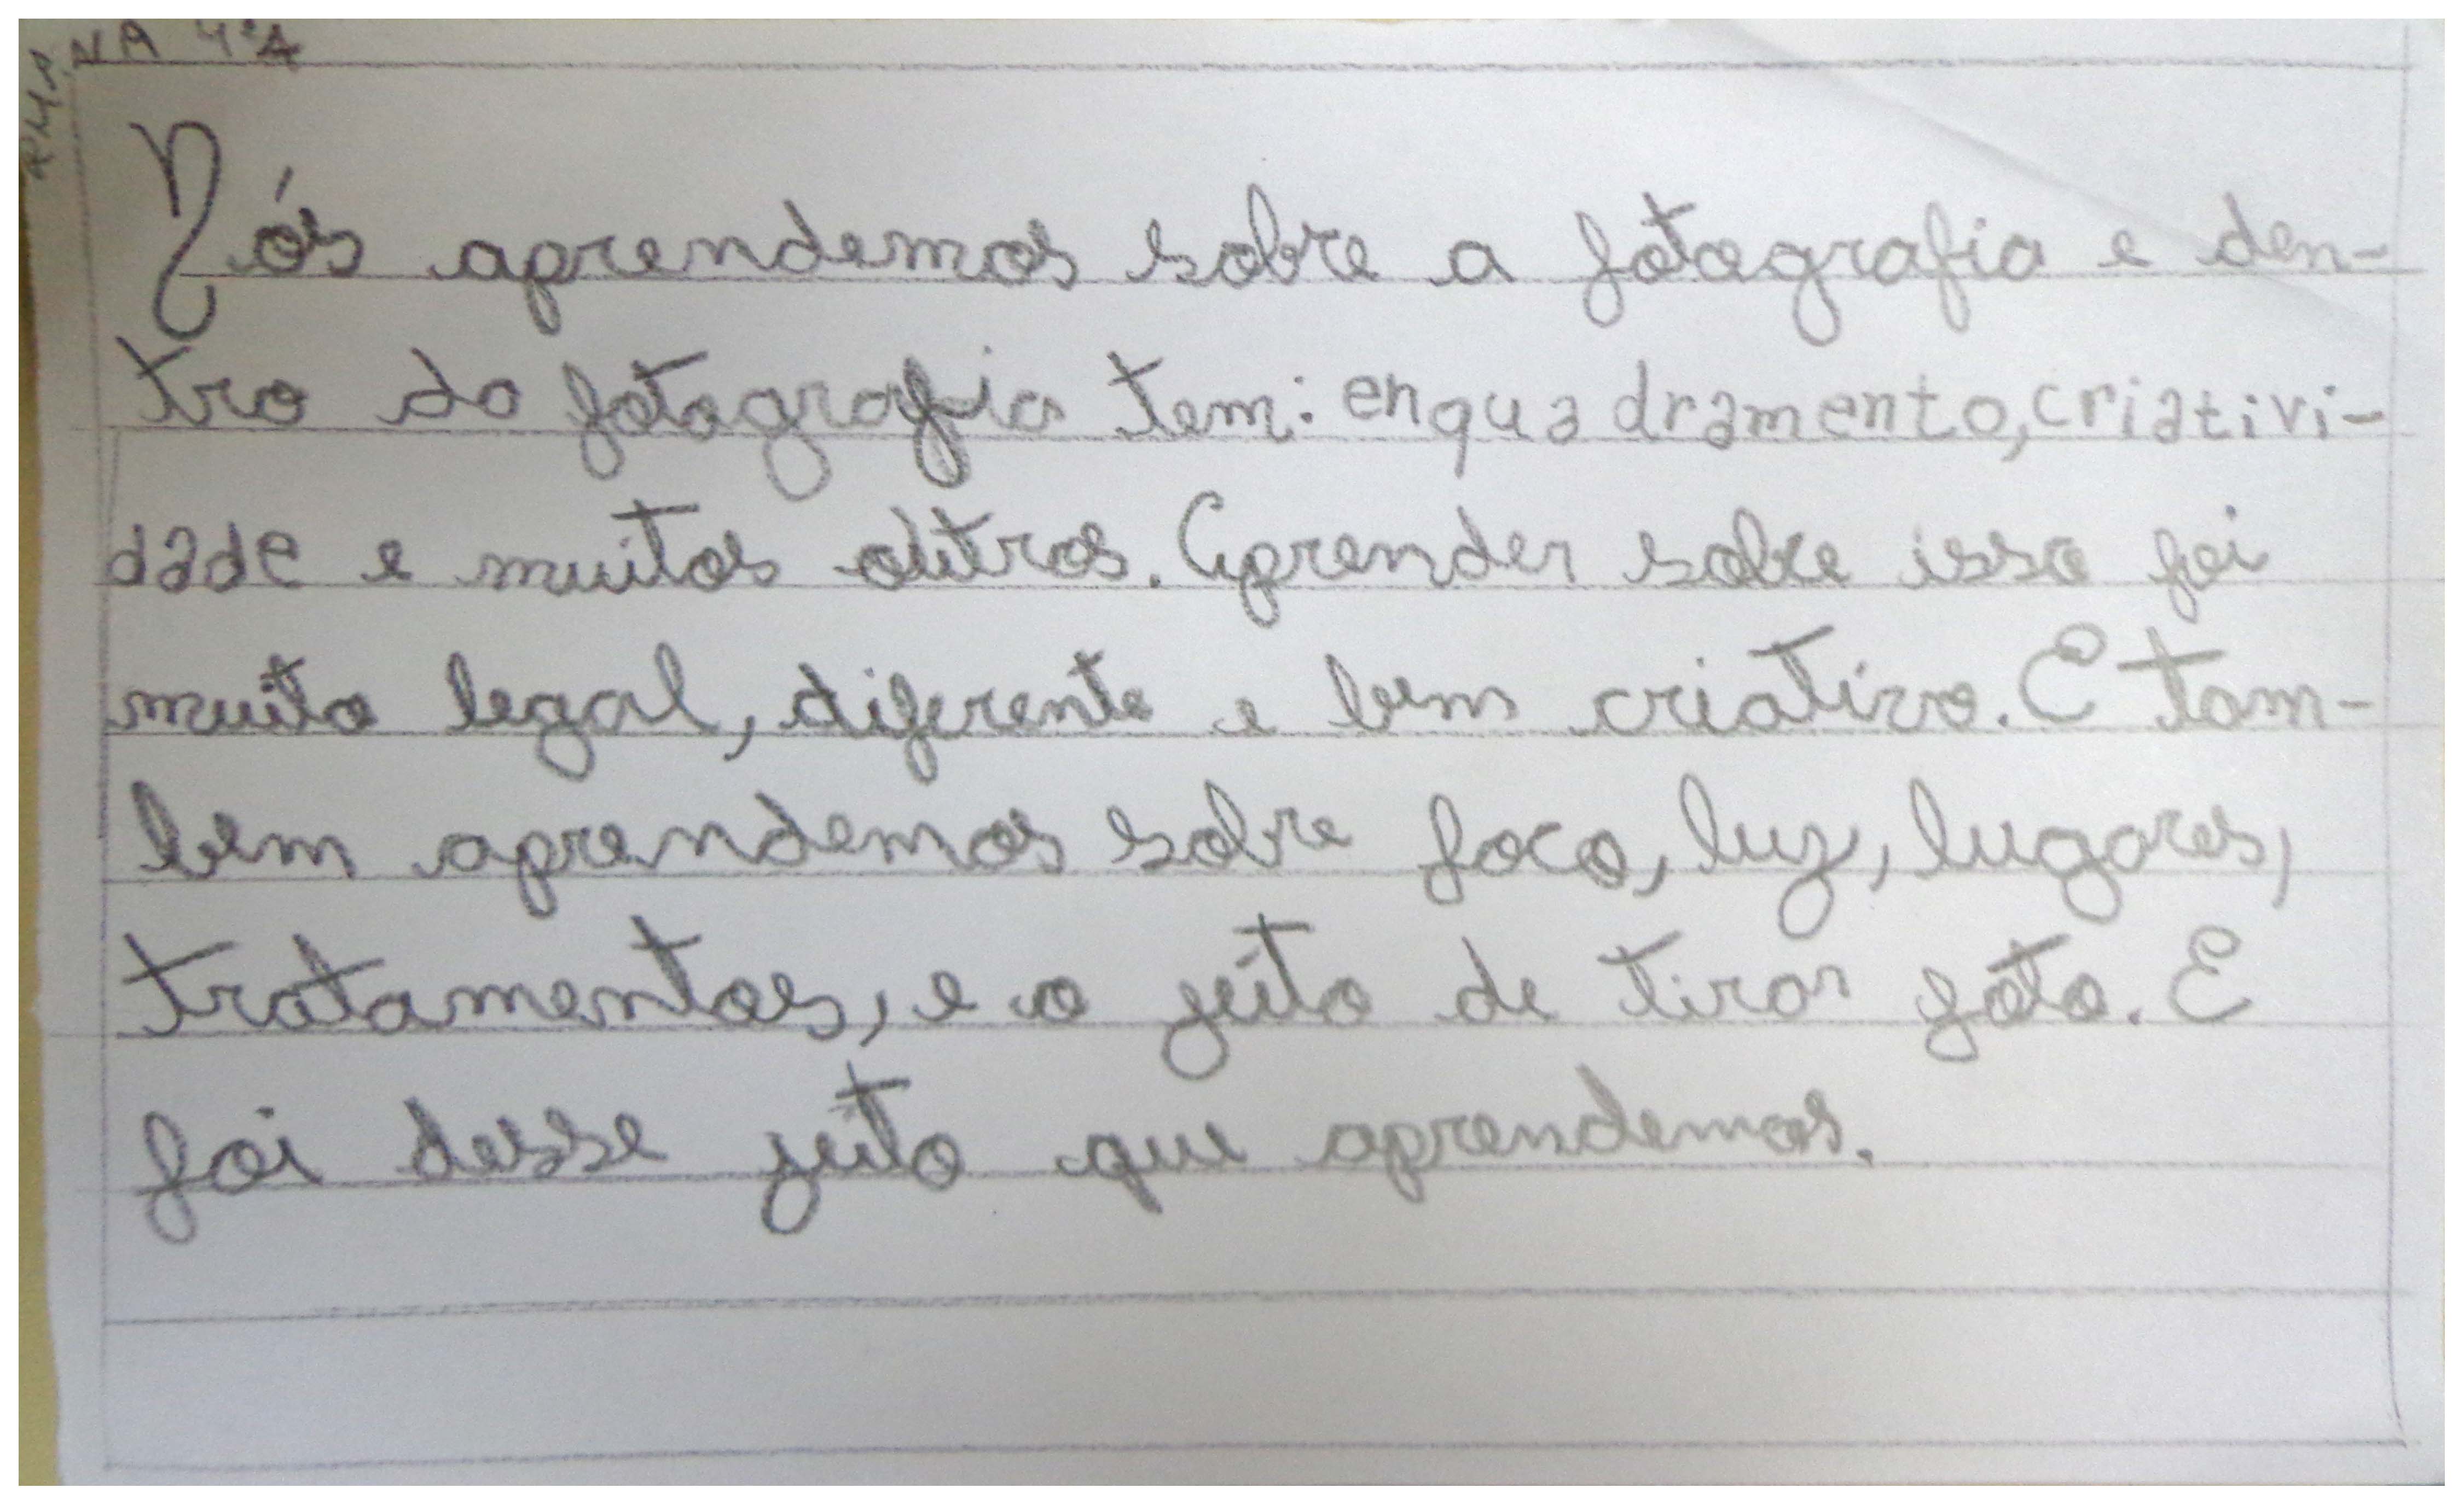 NA 4ºA
Nós aprendemos sobre a fotografia e den-
tro da fotografia tem: enquadramento, criativi-
dade e muitos outros. Aprender sobre isso foi
muito legal, diferente e bem criativo. E tam-
bem aprendemos sobre foco, luz, lugares,
tratamentos, e o jeito de tirar foto. E
foi desse jeito que aprendemos.